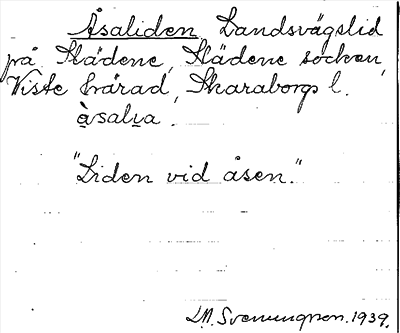 Åsaliden, Landsvägslid
på Slädene, Slädene socken,
Viste härad, Skaraborgs l.
àsalia.
"Liden vid åsen."
Svenungson. 1939.